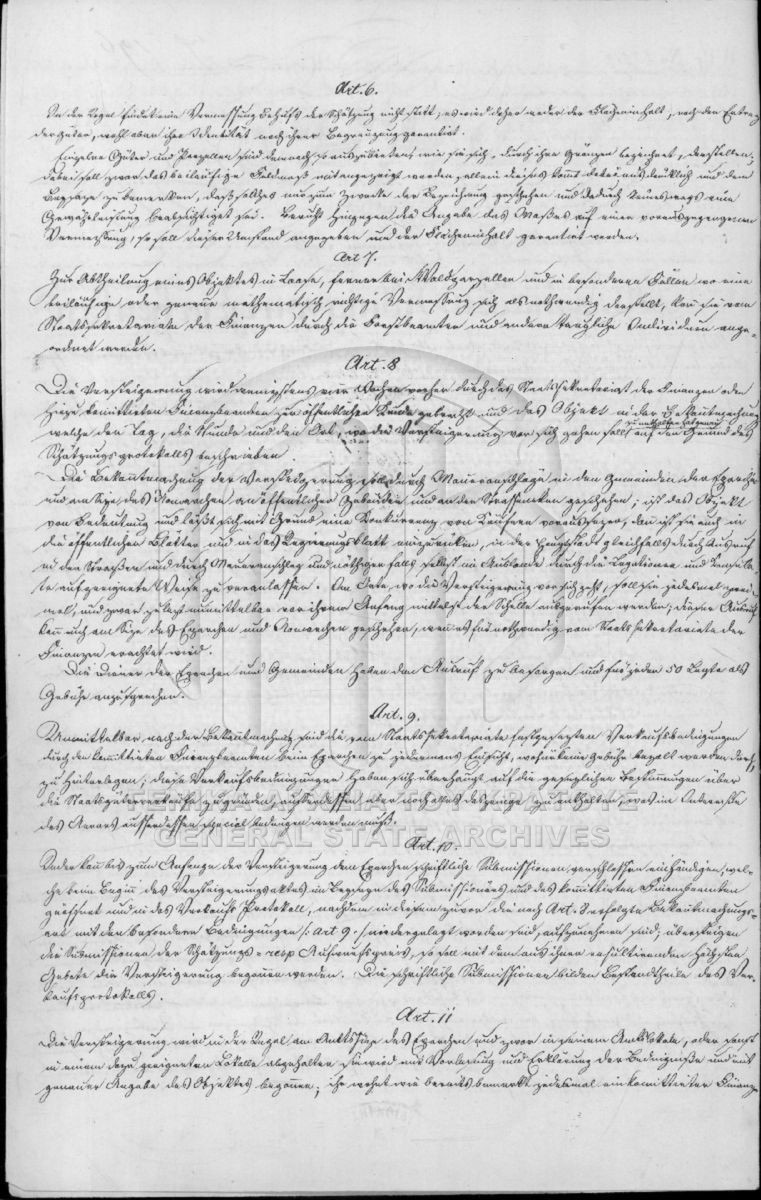 Art. 6.
In der Regel findet eine Vermessung Behufs der Schätzung nicht statt, es wird daher weder der Flächeninhalt, noch der Ertrag
der Güter, wohl aber ihre Identität nach ihrer Begränzung garantirt.
Einzelne Güter und Parzellen sind demnach so auszubieten, wie sie sich, durch ihre Gränzen bezeichnet, darstellen,
dabei soll zwar das beiläufige Feldmaß mit angezeigt werden, allein dieses kömmt dabei ausdrücklich mit dem
Beysatze zu bemerken, daß solches nur zum Zwecke der Beziehung geschehen und dadurch keineswegs eine
Gewährleistung beabsichtiget sey. Beruht hingegen die Angabe des Maßes auf einer vorausgegangenen
Vermessung, so soll dieser Umstand angegeben und der Flächeninhalt garantirt werden.
Art 7.
Zur Abtheilung eines Objektes in Loose, ferner bei Waldparzellen und in besonderen Fällen wo eine
beiläufige oder genaue mathematisch richtige Vermessung sich als nothwendig darstellt, kann sie vom
Staatssekretariate der Finanzen durch die Forstbeamten und andere taugliche Individuen ange-
ordnet werden.
Art. 8
Die Versteigerung wird wenigstens vier Wochen vorher durch das Staatssekretariat der Finanzen oder
committirten Finanzbeamten zur öffentlichen Kunde gebracht und das Objekt in der Bekanntmachung
welche den Tag, die Stunde und den Ort, wo die Versteigerung vor sich gehen soll auf den Grund des
Schätzungsprotokolls beschrieben
Die Bekanntmachung der Versteigerung soll durch Maueranschläge in den Gemeinden der Eparchie
und am Size des Nomarchen an öffentlichen Gebäuden und an den Strassenecken geschehen; ist das Objekt
von Bedeutung und läßt sich mit Grund eine Konkurrenz von Käufern voraussezen, dann ist sie auch in
die öffentlichen Blätter und in das Regierungsblatt einzurücken, in der Hauptstadt gleichfalls durch Ausruf
in den Straßen und durch Maueranschlag und nöthigen falls selbst im Auslande durch die Legationen und Konsula-
te auf geeignete Weise zu veranlassen. Am Orte, wo die Versteigerung vor sich geht, soll sie jedesmal zwei-
mal, und zwar zulezt unmittelbar vor ihrem Anfang mittelst der Schelle ausgerufen werden; dieser Ausruf
kann auch am Size des Eparchen und Nomarchen geschehen, wenn es für nothwendig vom Staatssekretariate der
Finanzen erachtet wird.
Die Diener der Eparchen und Gemeinden haben den Ausruf zu besorgen und für jeden 50 Lepta als
Gebühr anzusprechen.
Art. 9.
Unmittelbar nach der Bekanntmachung sind die vom Staatssekretariate festgesezten Verkaufsbedingungen
durch den committirten Finanzbeamten beim Eparchen zu jedermanns Einsicht, wofür keine Gebühr bezalt werden darf,
zu hinterlegen; diese Verkaufsbedingungen haben sich überhaupt auf die gesezlichen Bestimmungen über
die Staatsgüterverkäufe zu gründen, ausserdessen aber noch alles dasjenige zu enthalten, was im Interesse
des Aerars ausserdessen special bedungen werden muß.
Art. 10.
Jeder kann bis zum Anfange der Versteigerung dem Eparchen schriftliche Submissionen verschlossen einhändigen, wel-
che beim Beginn des Versteigerungsaktes im Beyseyn des Submissionärs und des committirten Finanzbeamten
geöffnet und in das Verkaufs Protokoll, nachdem in diesem zuvor die nach Art. 8 erfolgte Bekanntmachungs-
art mit den besonderen Bedingungen /: Art 9 :/ niedergelegt worden sind, aufzunehmen sind; übersteigen
die Submissionen der Schätzungs- resp Aufwurfspreis, so soll mit dem aus ihnen resultirenden höchsten
Gebote die Versteigerung begonnen werden. Die schriftliche Submissionen bilden Bestandtheile des Ver-
kaufsprotokolls.
Art. 11
Die Versteigerung wird in der Regel am Amtssitze des Eparchen und zwar in seinem Amtslokale, oder sonst
in einem dazu geeigneten Lokale abgehalten; sie wird mit Vorlesung und Erklärung der Bedingnisse und mit
genauer Angabe des Objektes begonnen; ihr wohnt wie bereits bemerkt jedesmal ein committirter Finanz-
GENERAL STATE ARCHIVES